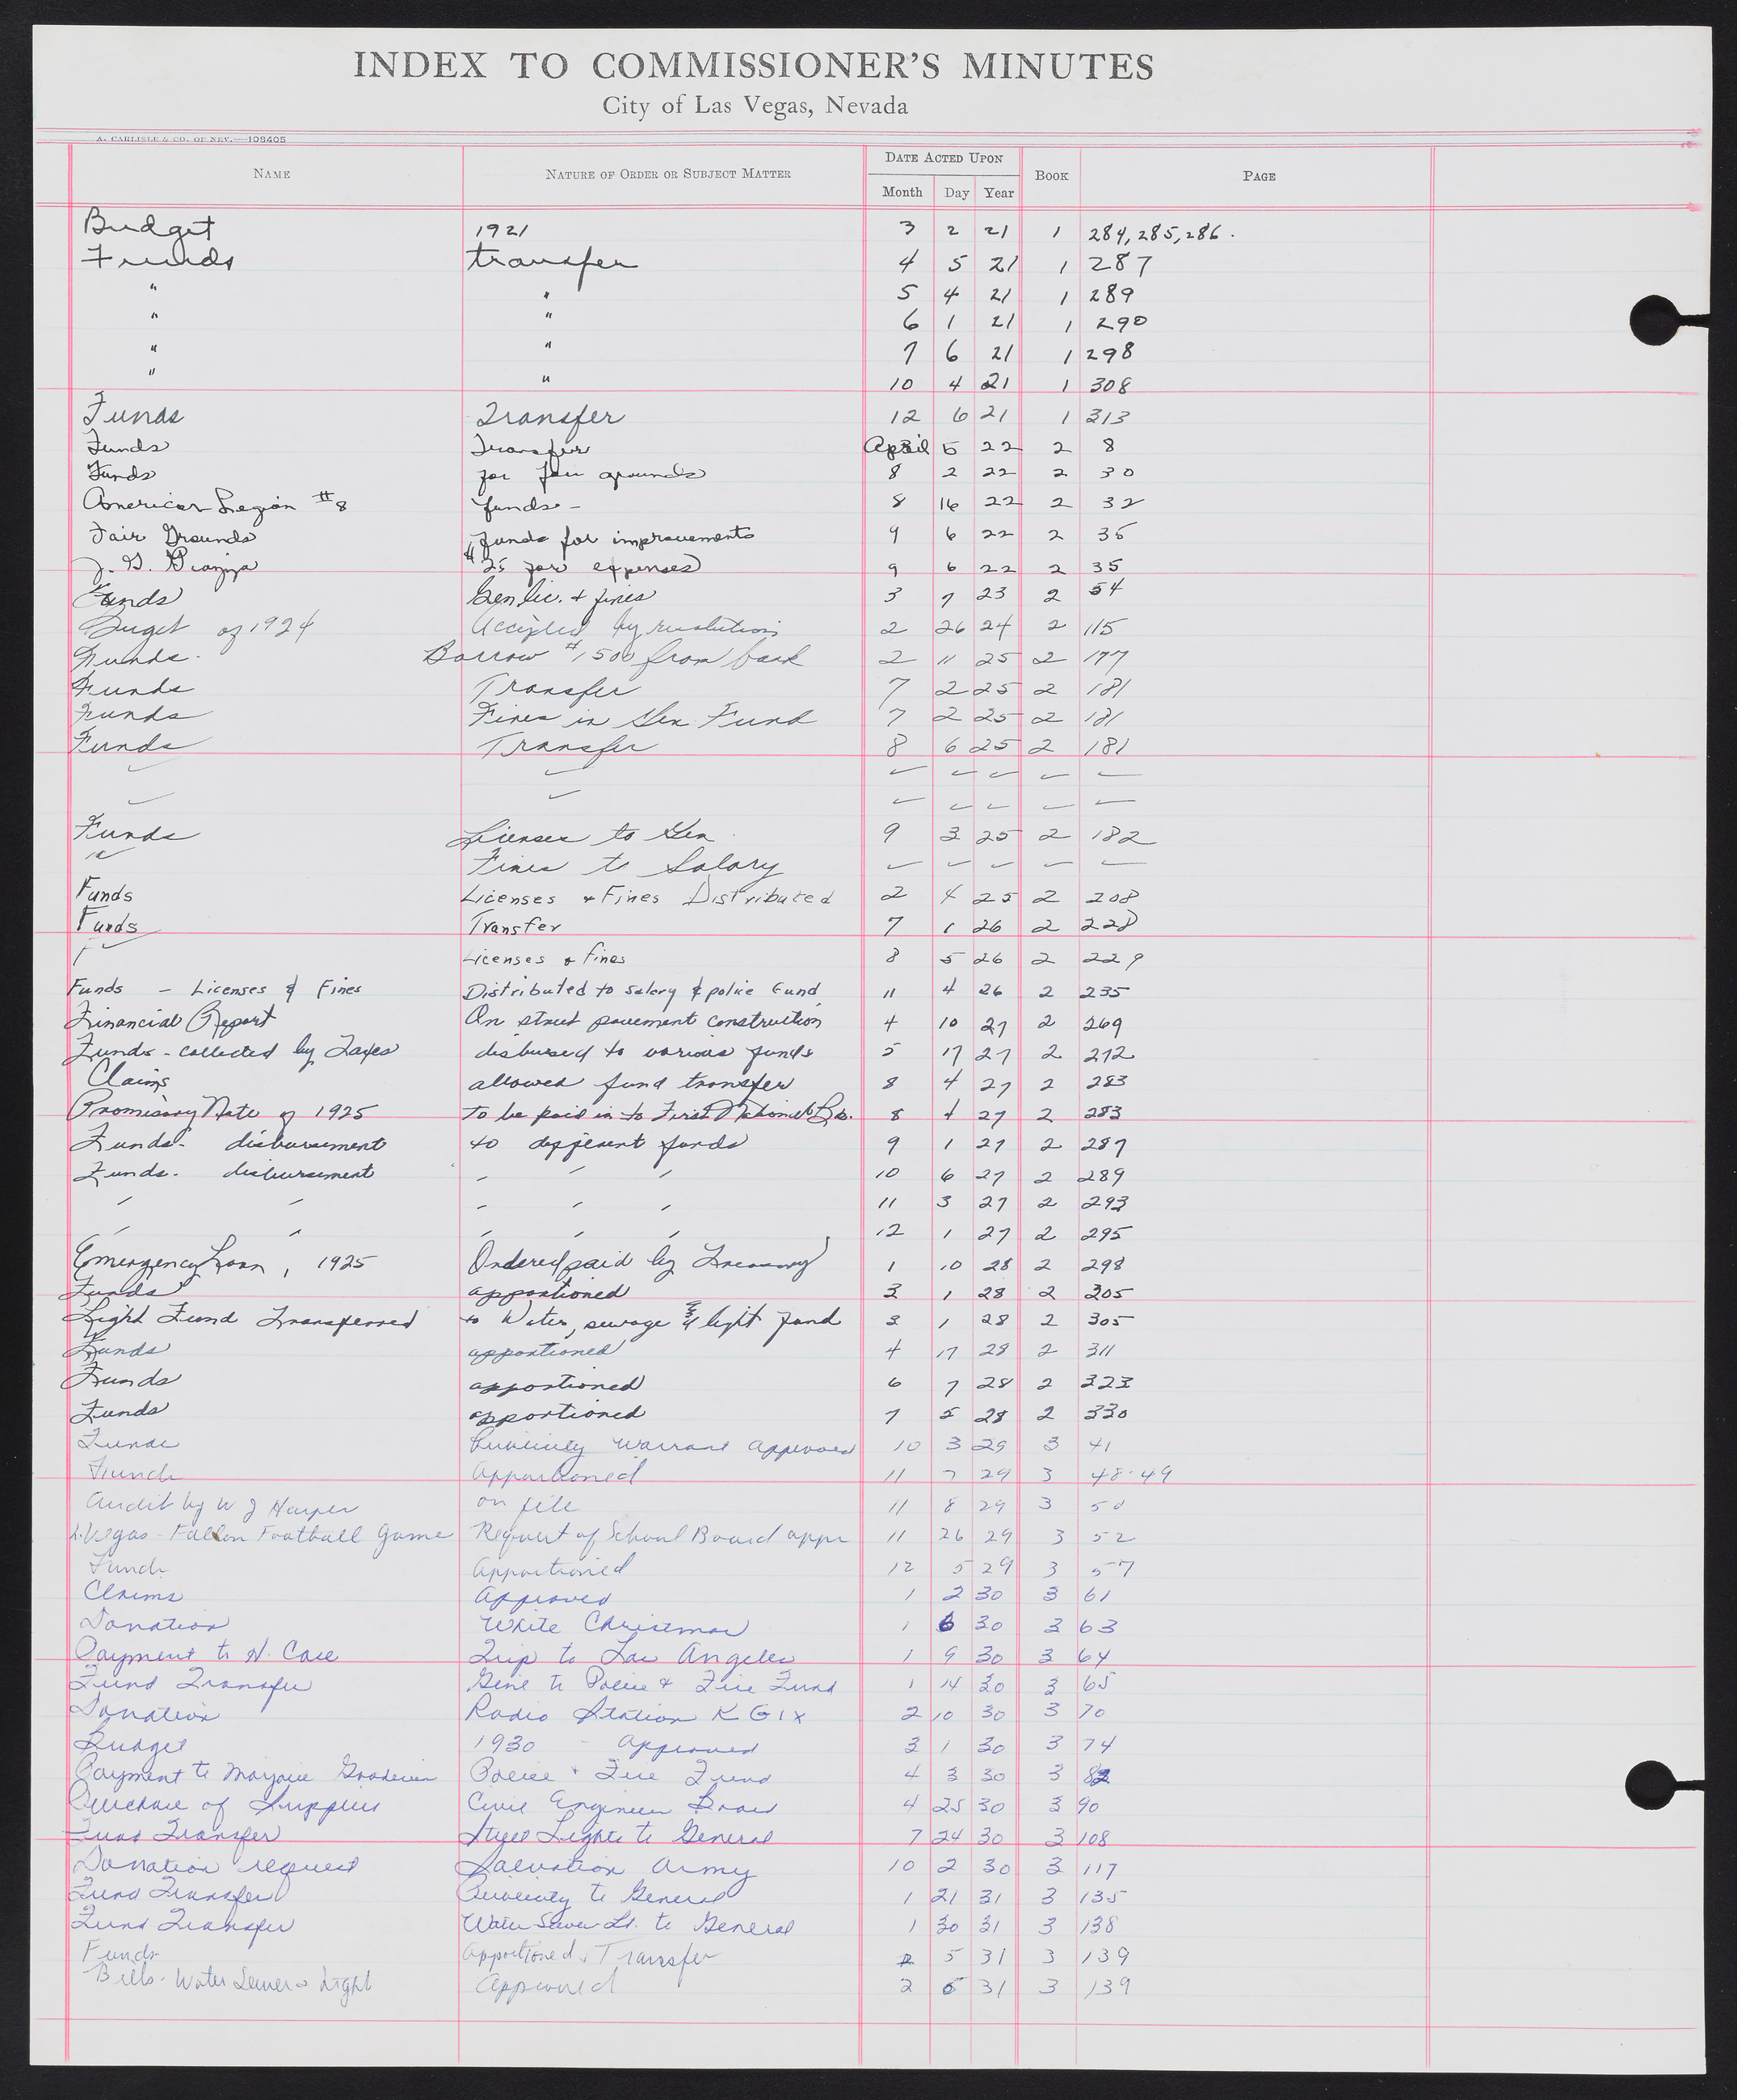 INDEX TO COMMISSIONER'S MINUTES
City of Las Vegas, Nevada
A. CARLISLE & CO. OF NEV.—108405
NAME NATURE OF ORDER OR SUBJECT MATTER DATE ACTED UPON BOOK PAGE
Month Day Year
Budget 1921 3 2 21 1 284, 285, 286.
Funds transfer 4 5 21 1 287
" " 5 4 21 1 289
" " 6 1 21 1 290
" " 7 6 21 1 298
" " 10 4 21 1 308
Funds Transfer 12 6 21 1 313
Funds Transfer April 5 22 2 8
Funds for fair grounds 8 2 22 2 30
American Legion #8 funds - 8 16 22 2 32
Fair Grounds funds for improvements 9 6 22 2 35
J. G. $25 for expenses 9 6 22 2 35
Funds Gen lic. + fines 3 7 23 2 54
Buget of 1924 Accepted by resolution 2 26 24 2 115
Funds. Borrow $1500 from bank 2 11 25 2 177
Funds Transfer 7 2 25 2 181
Funds Fines in Gen Fund 7 2 25 2 181
Funds Transfer 8 6 25 2 181
Funds Licenses to Gen. 9 3 25 2 182
" Fines to Salary
Funds Licenses + Fines Distributed 2 4 25 2 208
Funds Transfer 7 1 26 2 228
Licenses & fines 8 5 26 2 229
Funds - Licenses & Fines Distributed to salary & police fund 11 4 26 2 235
Financial Report On street pavement construction 4 10 27 2 269
Funds - collected by Taxes disbursed to various funds 5 17 27 2 272
Claims allowed fund transfer 8 4 27 2 283
Promissory Note of 1925 to be paid in to First National Bk. 8 4 27 2 283
Funds - disbursement to different funds 9 1 27 2 287
Funds - disbursement " " " 10 6 27 2 289
" " " " " 11 3 27 2 293
" " " " " 12 1 27 2 295
Emergency Loan, 1925 Ordered paid by Treasury 1 10 28 2 298
Funds apportioned 3 1 28 2 305
Light Fund Transferred to Water, sewage & light fund 3 1 28 2 305
Funds apportioned 4 17 28 2 311
Funds apportioned 6 7 28 2 323
Funds apportioned 7 5 28 2 330
Funds Publicity Warrant approved 10 3 29 3 41
Funds Apportioned 11 7 29 3 48-49
Audit by W J Harper on file 11 8 29 3 50
L. Vegas - Fallon Football Game Request of School Board appr 11 26 29 3 52
Funds Apportioned 12 5 29 3 57
Claims Approved 1 2 30 3 61
Donation White Christmas 1 6 30 3 63
Payment to H. Case Trip to Los Angeles 1 9 30 3 64
Fund Transfer Genl to Police & Fire Fund 1 14 30 3 65
Donation Radio Station KGIX 2 10 30 3 70
Budget 1930 - Approved 3 1 30 3 74
Payment to Marjorie Police & Fire Fund 4 3 30 3 82
Purchase of Supplies Civil Engineer 4 25 30 3 90
Fund Transfer Street Lights to General 7 24 30 3 108
Donation request Salvation Army 10 2 30 3 117
Fund Transfer Publicity to General 1 21 31 3 135
Fund Transfer Water Sewer Lt. to General 1 30 31 3 138
Funds Apportioned & Transfer 2 5 31 3 139
Bills - Water Sewer & Light Approved 2 5 31 3 139